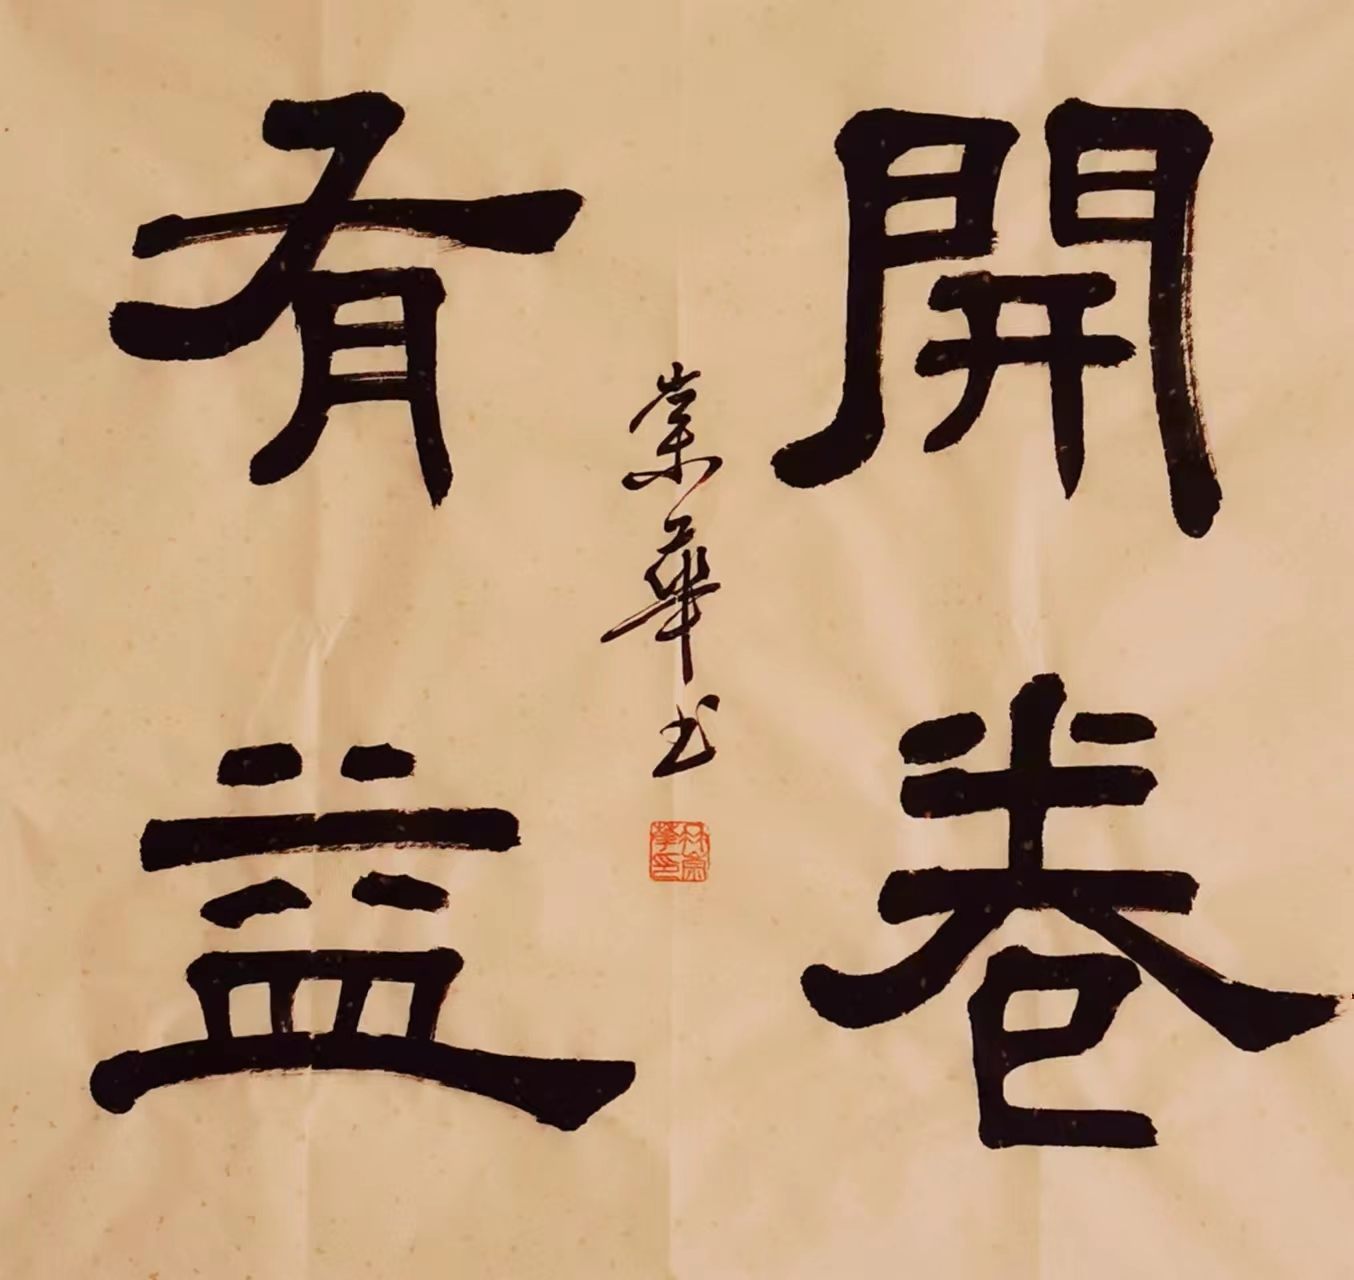 開卷
有益
華书